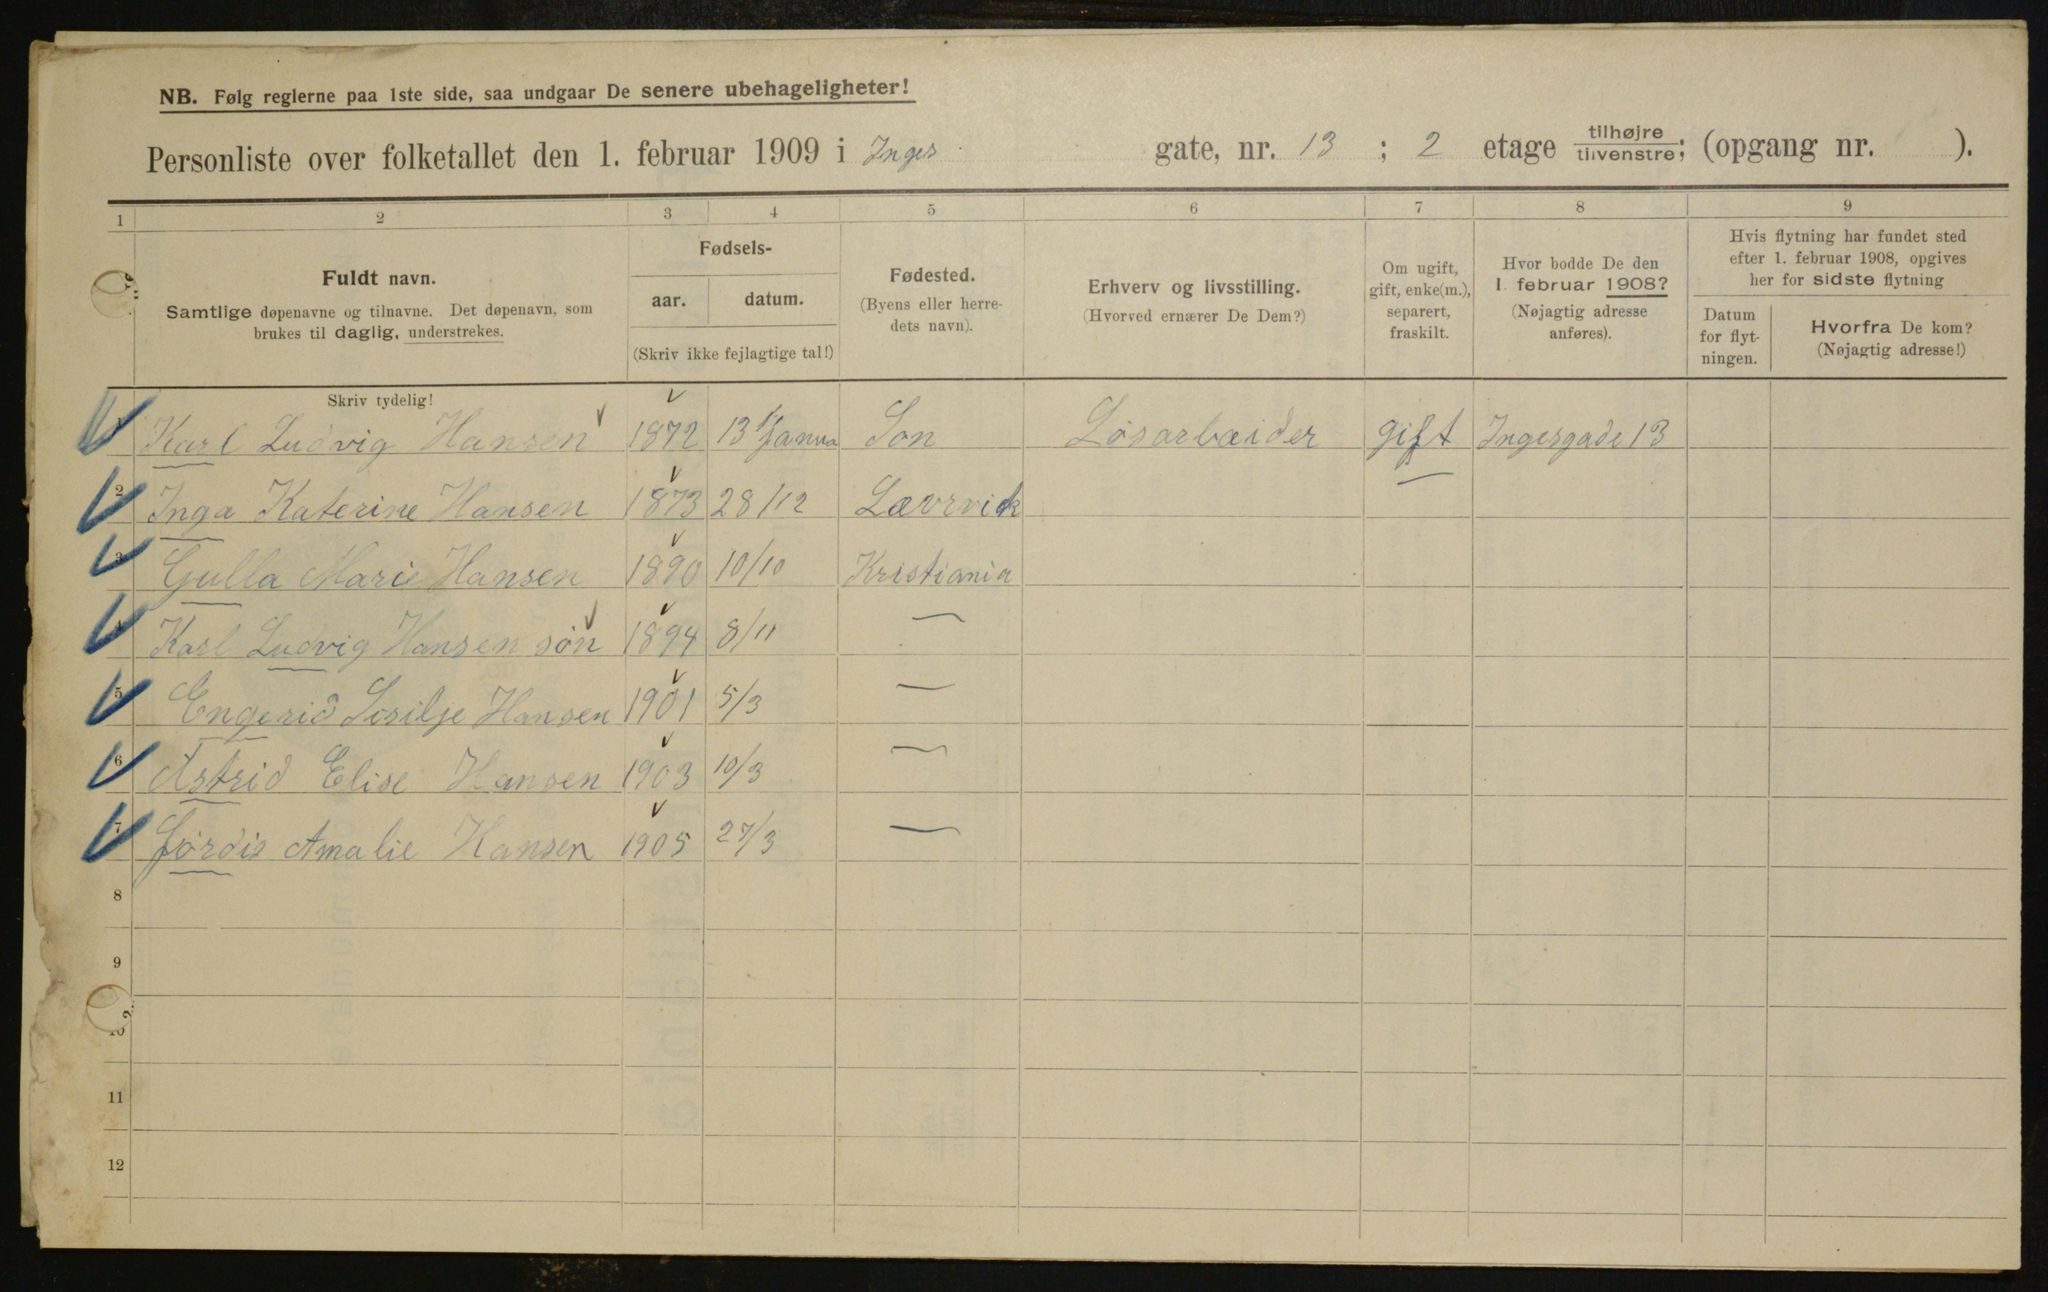 NB. Følg reglerne paa 1ste side, saa undgaar De senere ubehageligheter!
Personliste over folketallet den 1. februar 1909 i Inges gate, nr. 13 ; 2 etage tilhøjre tilvenstre; (opgang nr. ).
1 2 3 4 5 6 7 8 9
Fuldt navn.
Samtlige døpenavne og tilnavne. Det døpenavn, som
brukes til daglig, understrekes.
Fødsels-
aar. datum.
(Skriv ikke fejlagtige tal!)
Fødested.
(Byens eller herre-
dets navn).
Erhverv og livsstilling.
(Hvorved ernærer De Dem?)
Om ugift,
gift, enke(m.),
separert,
fraskilt.
Hvor bodde De den
1. februar 1908?
(Nøjagtig adresse
anføres).
Hvis flytning har fundet sted
efter 1. februar 1908, opgives
her for sidste flytning
Datum
for flyt-
ningen.
Hvorfra De kom?
(Nøjagtig adresse!)
Skriv tydelig!
1 Karl Ludvig Hansen 1872 13 Janua Son Løsarbæider gift Ingesgade 13
2 Inga Katerine Hansen 1873 28/12 Lævrvick
3 Gulla Marie Hansen 1890 10/10 Kristiania
4 Karl Ludvig Hansen søn 1894 8/11 —
5 Engerid Sisilje Hansen 1901 5/3 —
6 Astrid Elise Hansen 1903 10/3 —
7 Jørdis Amalie Hansen 1905 27/3 —
8
9
10
11
12